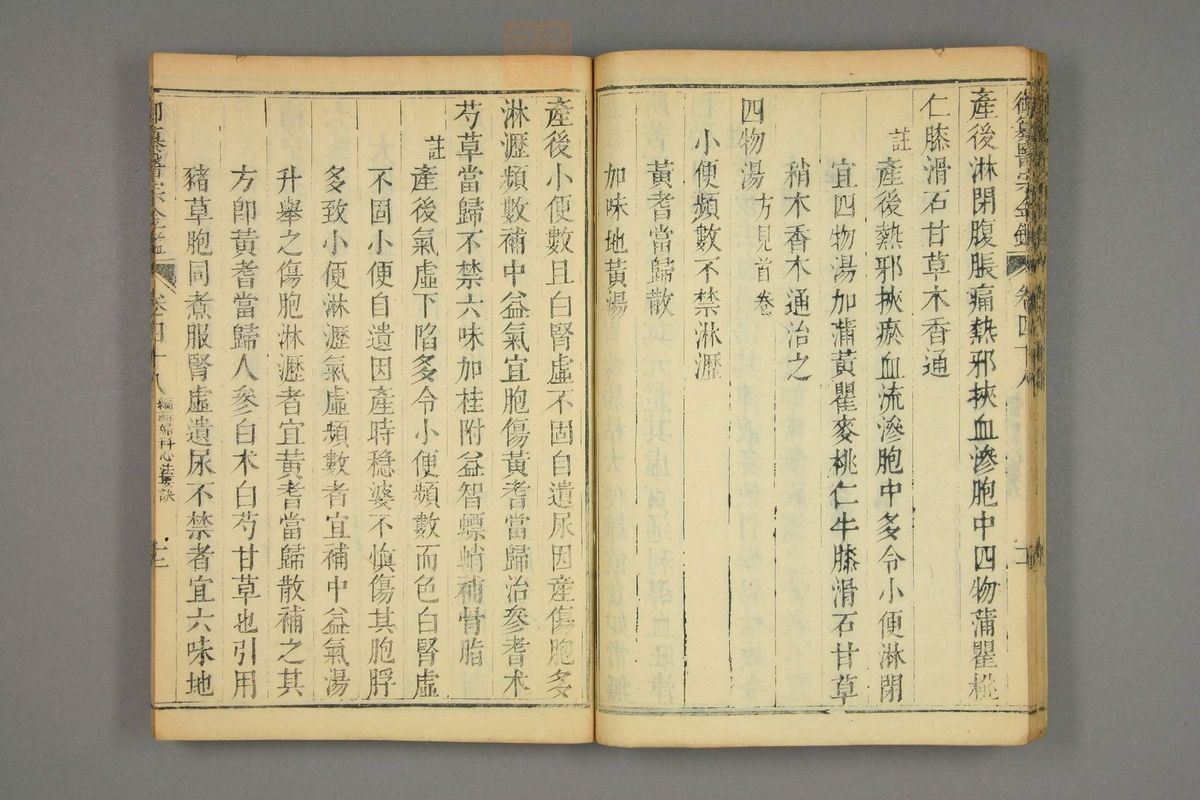 御纂醫宗金鑑 卷四十八
產後淋閉腹脹痛熱邪挾血滲胞中四物蒲瞿桃
仁膝滑石甘草木香通
註產後熱邪挾瘀血流滲胞中多令小便淋閉
宜四物湯加蒲黃瞿麥桃仁牛膝滑石甘草
稍木香木通治之
四物湯方見首卷
小便頻數不禁淋瀝
黃耆當歸散
加味地黃湯
產後小便數且白腎虛不固自遺尿因產傷胞多
淋瀝頻數補中益氣宜胞傷黃耆當歸治參耆朮
芍草當歸不禁六味加桂附益智螵蛸補骨脂
註產後氣虛下陷多令小便頻數而色白腎虛
不固小便自遺因產時穩婆不慎傷其胞脬
多致小便淋瀝氣虛頻數者宜補中益氣湯
升舉之傷胞淋瀝者宜黃耆當歸散補之其
方卽黃耆當歸人參白朮白芍甘草也引用
豬草胞同煮服腎虛遺尿不禁者宜六味地
御纂醫宗金鑑 卷四十八 編輯婦科心法要訣